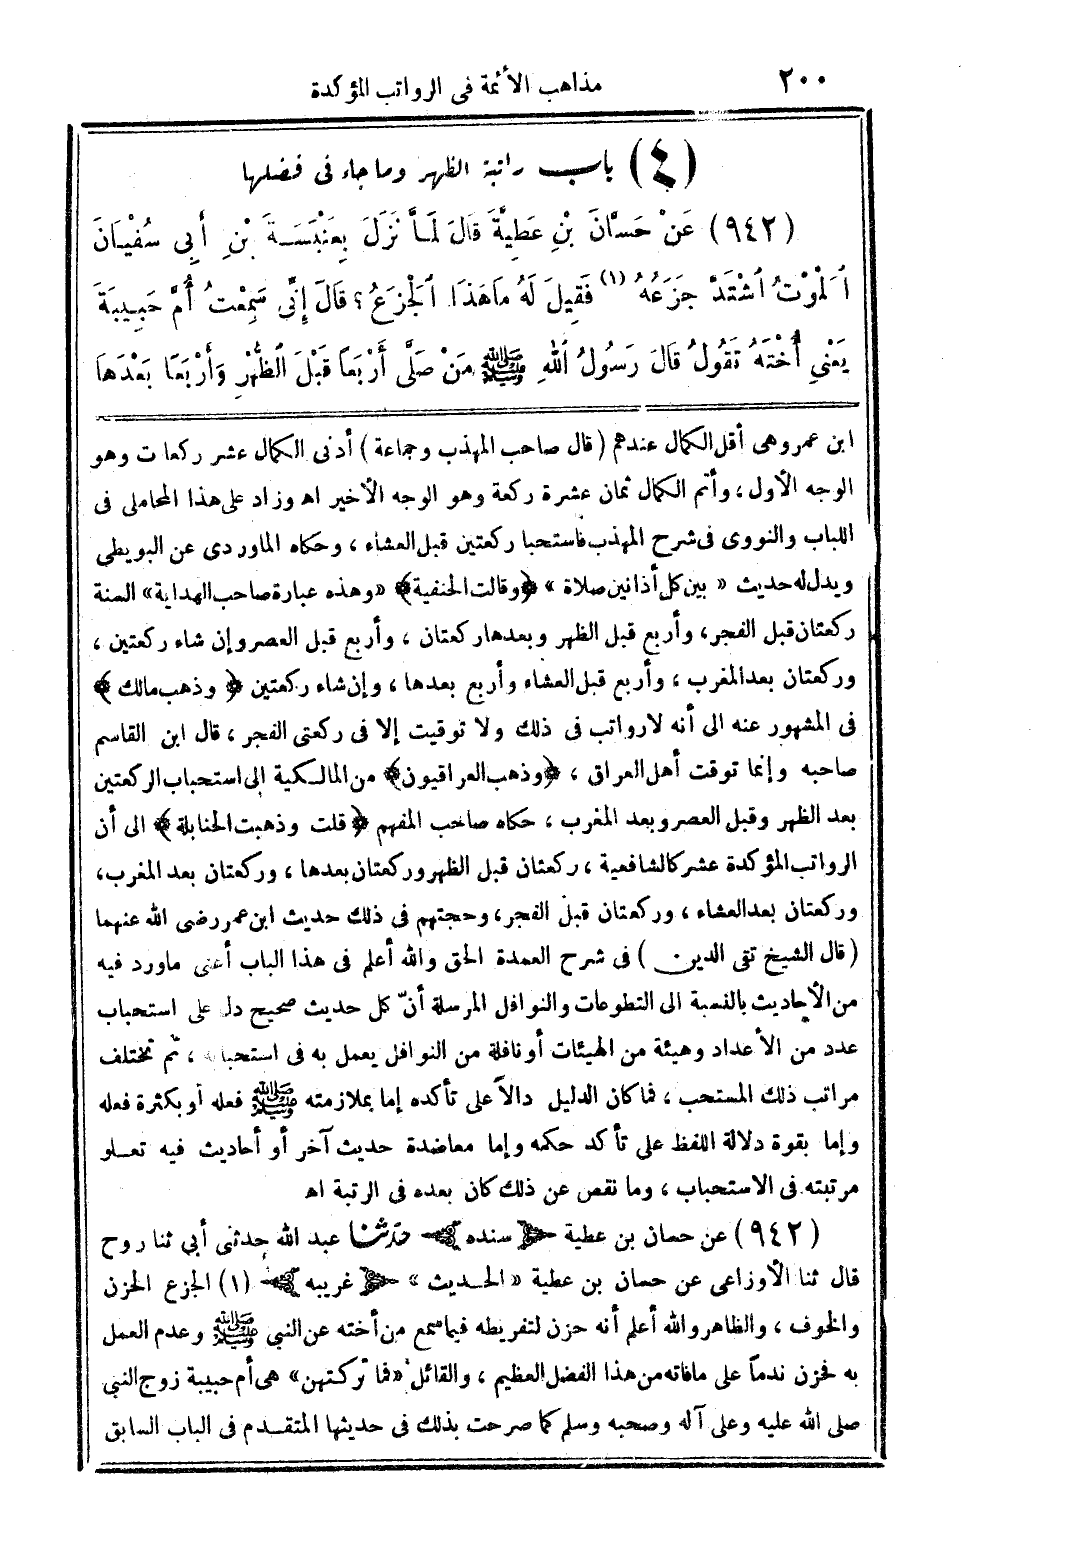 ٢٠٠
مذاهب الأئمة فى الرواتب المؤكدة
(٤) باب راتبة الظهر وما جاء فى فضلها
(٩٤٢) عَنْ حَسَّانَ بْنِ عَطِيَّةَ قَالَ لَمَّا نَزَلَ بِعَنْبَسَةَ بْنِ أَبِي سُفْيَانَ
الْمَوْتُ اشْتَدَّ جَزَعُهُ (١) فَقِيلَ لَهُ مَاهَذَا الْجَزَعُ؟ قَالَ إِنِّى سَمِعْتُ أُمَّ حَبِيبَةَ
يَعْنِي أُخْتَهُ تَقُولُ قَالَ رَسُولُ اللهِ ﷺ مَنْ صَلَّى أَرْبَعاً قَبْلَ الظُّهْرِ وَأَرْبَعًا بَعْدَهَا
ابن عمر وهى أقل الكمال عندهم (قال صاحب المهذب وجماعة) أدنى الكمال عشر ركعات وهو
الوجه الأول، وأتم الكمال ثمان عشرة ركعة وهو الوجه الأخير اه وزاد على هذا المحاملى فى
اللباب والنووى فى شرح المهذب فاستحبا ركعتين قبل العشاء، وحكاه الماوردى عن البويطى
ويدل له حديث « بين كل أذانين صلاة » ﴿وقالت الحنفية﴾ «وهذه عبارة صاحب الهداية» السنة
ركعتان قبل الفجر، وأربع قبل الظهر وبعدها ركعتان، وأربع قبل العصر وإن شاء ركعتين،
وركعتان بعد المغرب، وأربع قبل العشاء وأربع بعدها، وإن شاء ركعتين ﴿وذهب مالك﴾
فى المشهور عنه الى أنه لارواتب فى ذلك ولا توقيت إلا فى ركعتى الفجر، قال ابن القاسم
صاحبه وإنما توقت أهل العراق، ﴿وذهب العراقيون﴾ من المالكية إلى استحباب الركعتين
بعد الظهر وقبل العصر وبعد المغرب، حكاه صاحب المفهم ﴿قلت وذهبت الحنابلة﴾ الى أن
الرواتب المؤكدة عشر كالشافعية، ركعتان قبل الظهر وركعتان بعدها، وركعتان بعد المغرب،
وركعتان بعد العشاء، وركعتان قبل الفجر، وحجتهم فى ذلك حديث ابن عمر رضى الله عنهما
(قال الشيخ تقى الدين) فى شرح العمدة الحق والله أعلم فى هذا الباب أعنى ماورد فيه
من الأحاديث بالنسبة الى التطوعات والنوافل المرسلة أنّ كل حديث صحيح دل على استحباب
عدد من الأعداد وهيئة من الهيئات أو نافلة من النوافل يعمل به فى استحبابه، ثم تختلف
مراتب ذلك المستحب، فما كان الدليل دالاً على تأكده إما بملازمته ﷺ فعله أو بكثرة فعله
وإما بقوة دلالة اللفظ على تأكد حكمه وإما معاضدة حديث آخر أو أحاديث فيه تعلو
مرتبته فى الاستحباب، وما نقص عن ذلك كان بعده فى الرتبة اه
(٩٤٢) عن حسان بن عطية سنده حدثنا عبد الله حدثنى أبي ثنا روح
قال ثنا الأوزاعى عن حسان بن عطية « الحديث » غريبه (١) الجزع الحزن
والخوف، والظاهر والله أعلم أنه حزن لتفريطه فيما سمع من أخته عن النبي ﷺ وعدم العمل
به فحزن ندماً على مافاته من هذا الفضل العظيم، والقائل «فما تركتهن» هى أم حبيبة زوج النبي
صلى الله عليه وعلى آله وصحبه وسلم كما صرحت بذلك فى حديثها المتقدم فى الباب السابق